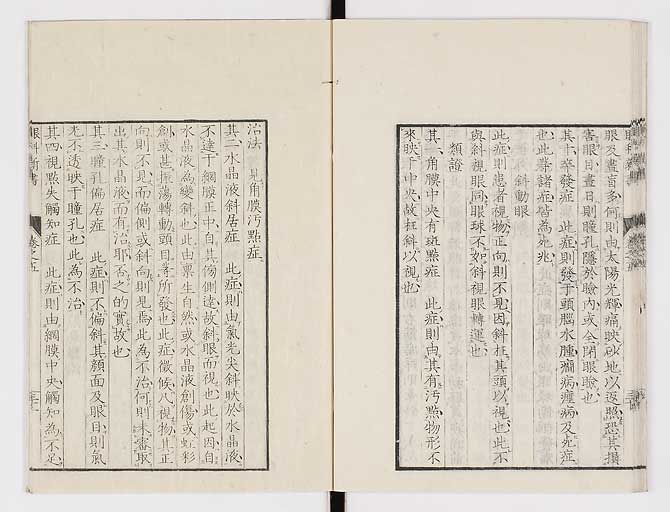 眼及晝盲多何則由太陽光輝痛映砂地以返照恐其損
害眼目晝日則瞳孔隱於瞼內或全閉眼瞼也
其十卒發症 此症則發于頭腦水腫癇病瘇病及死症
也此等諸症皆為死兆
斜動眼
此症則患者視物正向則不見因斜枉其頭以視也此不
與斜視眼同眼球不如斜視眼轉運也
類證
其一角膜中央有斑點症 此症則由其有汚點物形不
來映于中央故枉斜以視也
眼科新書 卷之五
治法 見角膜汚點症
其二水晶液斜居症 此症則由氣光尖斜映於水晶液
不達于網膜正中自其傍側達故斜眼而視也此起因自
水晶液為變斜也此由稟生自然或水晶液創傷或虹彩
創或甚振蕩轉動頭目等所發也此症徵候凡視物其正
向則不見而偏側或斜向則見焉此為不治何則未審取
出其水晶液而有治耶否之的實故也
其三瞳孔偏居症 此症則不偏斜其顏面及眼目則氣
光不透映于瞳孔也此為不治
其四視點失觸知症 此症則由網膜中央觸知為不足